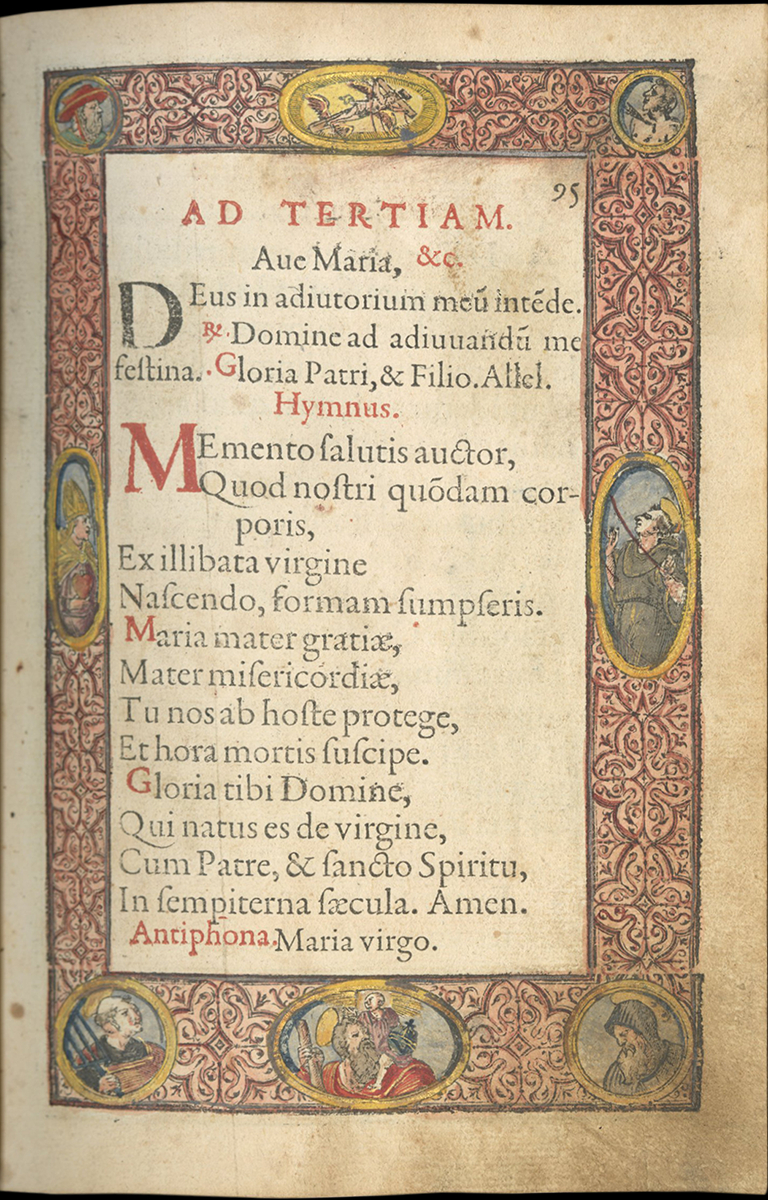 95
AD TERTIAM.
Aue Maria, &c.
DEus in adiutorium meū intēde.
℞. Domine ad adiuuandū me
feſtina. Gloria Patri, & Filio. Allel.
Hymnus.
MEmento ſalutis auctor,
Quod noſtri quōdam cor-
poris,
Ex illibata virgine
Naſcendo, formam ſumpſeris.
Maria mater gratiæ,
Mater miſericordiæ,
Tu nos ab hoſte protege,
Et hora mortis ſuſcipe.
Gloria tibi Domine,
Qui natus es de virgine,
Cum Patre, & ſancto Spiritu,
In ſempiterna ſæcula. Amen.
Antiphona. Maria virgo.